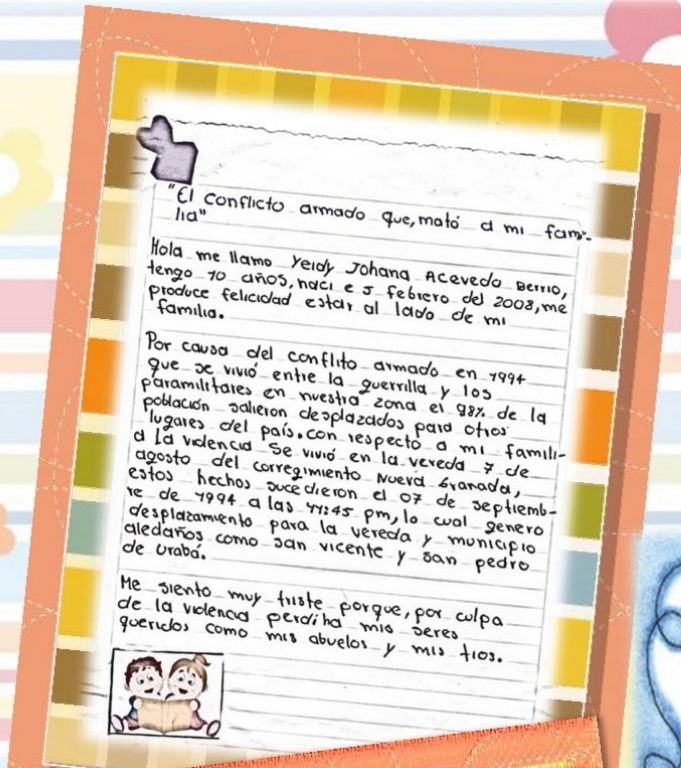 "El conflicto armado que, mató a mi fami-
lia"
Hola me llamo Yeidy Johana Acevedo Berrio,
tengo 10 años, naci e 5 febrero del 2008, me
produce felicidad estar al lado de mi
familia.
Por causa del conflito armado en 1994
que se vivió entre la guerrilla y los
paramilitares en nuestra zona el 98% de la
población salieron desplazados para otros
lugares del país. con respecto a mi famili-
a La violencia se vivió en la vereda 7 de
agosto del corregimiento Nueva Granada,
estos hechos sucedieron el 07 de septiemb-
re de 1994 a las 11:45 pm, lo cual genero
desplazamiento para la vereda y municipio
aledaños como san vicente y san pedro
de Urabá.
Me siento muy triste porque, por culpa
de la violencia perdi ha mis seres
queridos como mis abuelos y mis tios.